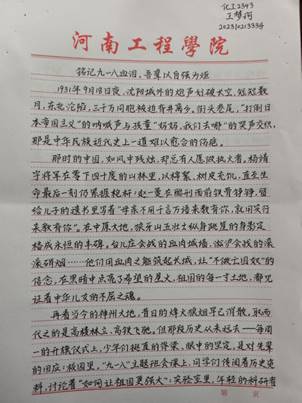 化工2343
王梦珂
河南工程學院
铭记九一八血泪，吾辈以自强为炬
1931年9月18日夜，沈阳城外的炮声划破长空，短短数
月，东北沦陷，三千万同胞被迫背井离乡。街头巷尾，“打倒日
本帝国主义”的呐喊声与孩童“妈妈，我们去哪”的哭声交织，
那是中华民族近代史上一道难以愈合的伤疤。
那时的中国，如风中残烛，却总有人愿做执火者。杨靖
宇将军在零下四十度的山林里，以棉絮、树皮充饥，直至生
命最后一刻仍紧握枪杆；赵一曼在临刑前铁骨铮铮，留
给儿子的遗书里写着“母亲不用千言万语来教育你，就用实行
来教育你”。在中原大地，狼牙山五壮士纵身跳崖的身影定
格成永恒的丰碑，台儿庄会战的血肉城墙，淞沪会战的滚
滚硝烟……他们用血肉之躯筑起长城，让“不做亡国奴”的
信念，在黑暗中点亮了希望的星火，祖国的每一寸土地，都见
证着中华儿女的不屈之魂。
再看当今的神州大地，昔日的烽火狼烟早已消散，取而
代之的是高楼林立、高铁飞驰。但那段历史从未远去——每周
一的升旗仪式上，少年们挺直的脊梁、眼中的坚定，是对先辈
的回应；校园里，“九一八”主题班会课上，同学们传阅着历史资
料，讨论着“如何让祖国更强大”；实验室里，年轻的科研者